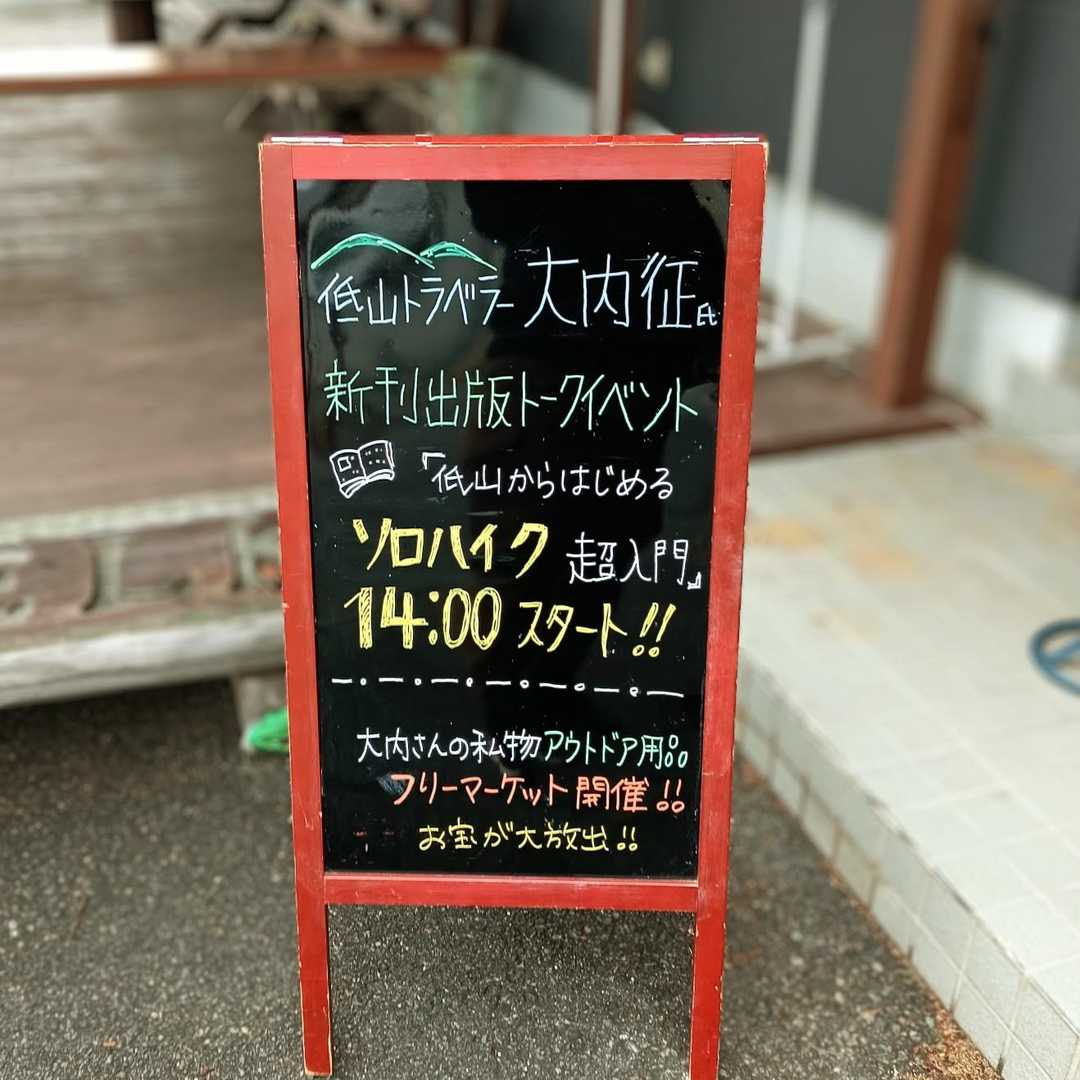 低山トラベラー 大内征氏
新刊出版トークイベント
「低山からはじめる
ソロハイク 超入門』
14:00 スタート!!
大内さんの私物アウトドア用品
フリーマーケット開催!!
お宝が大放出!!